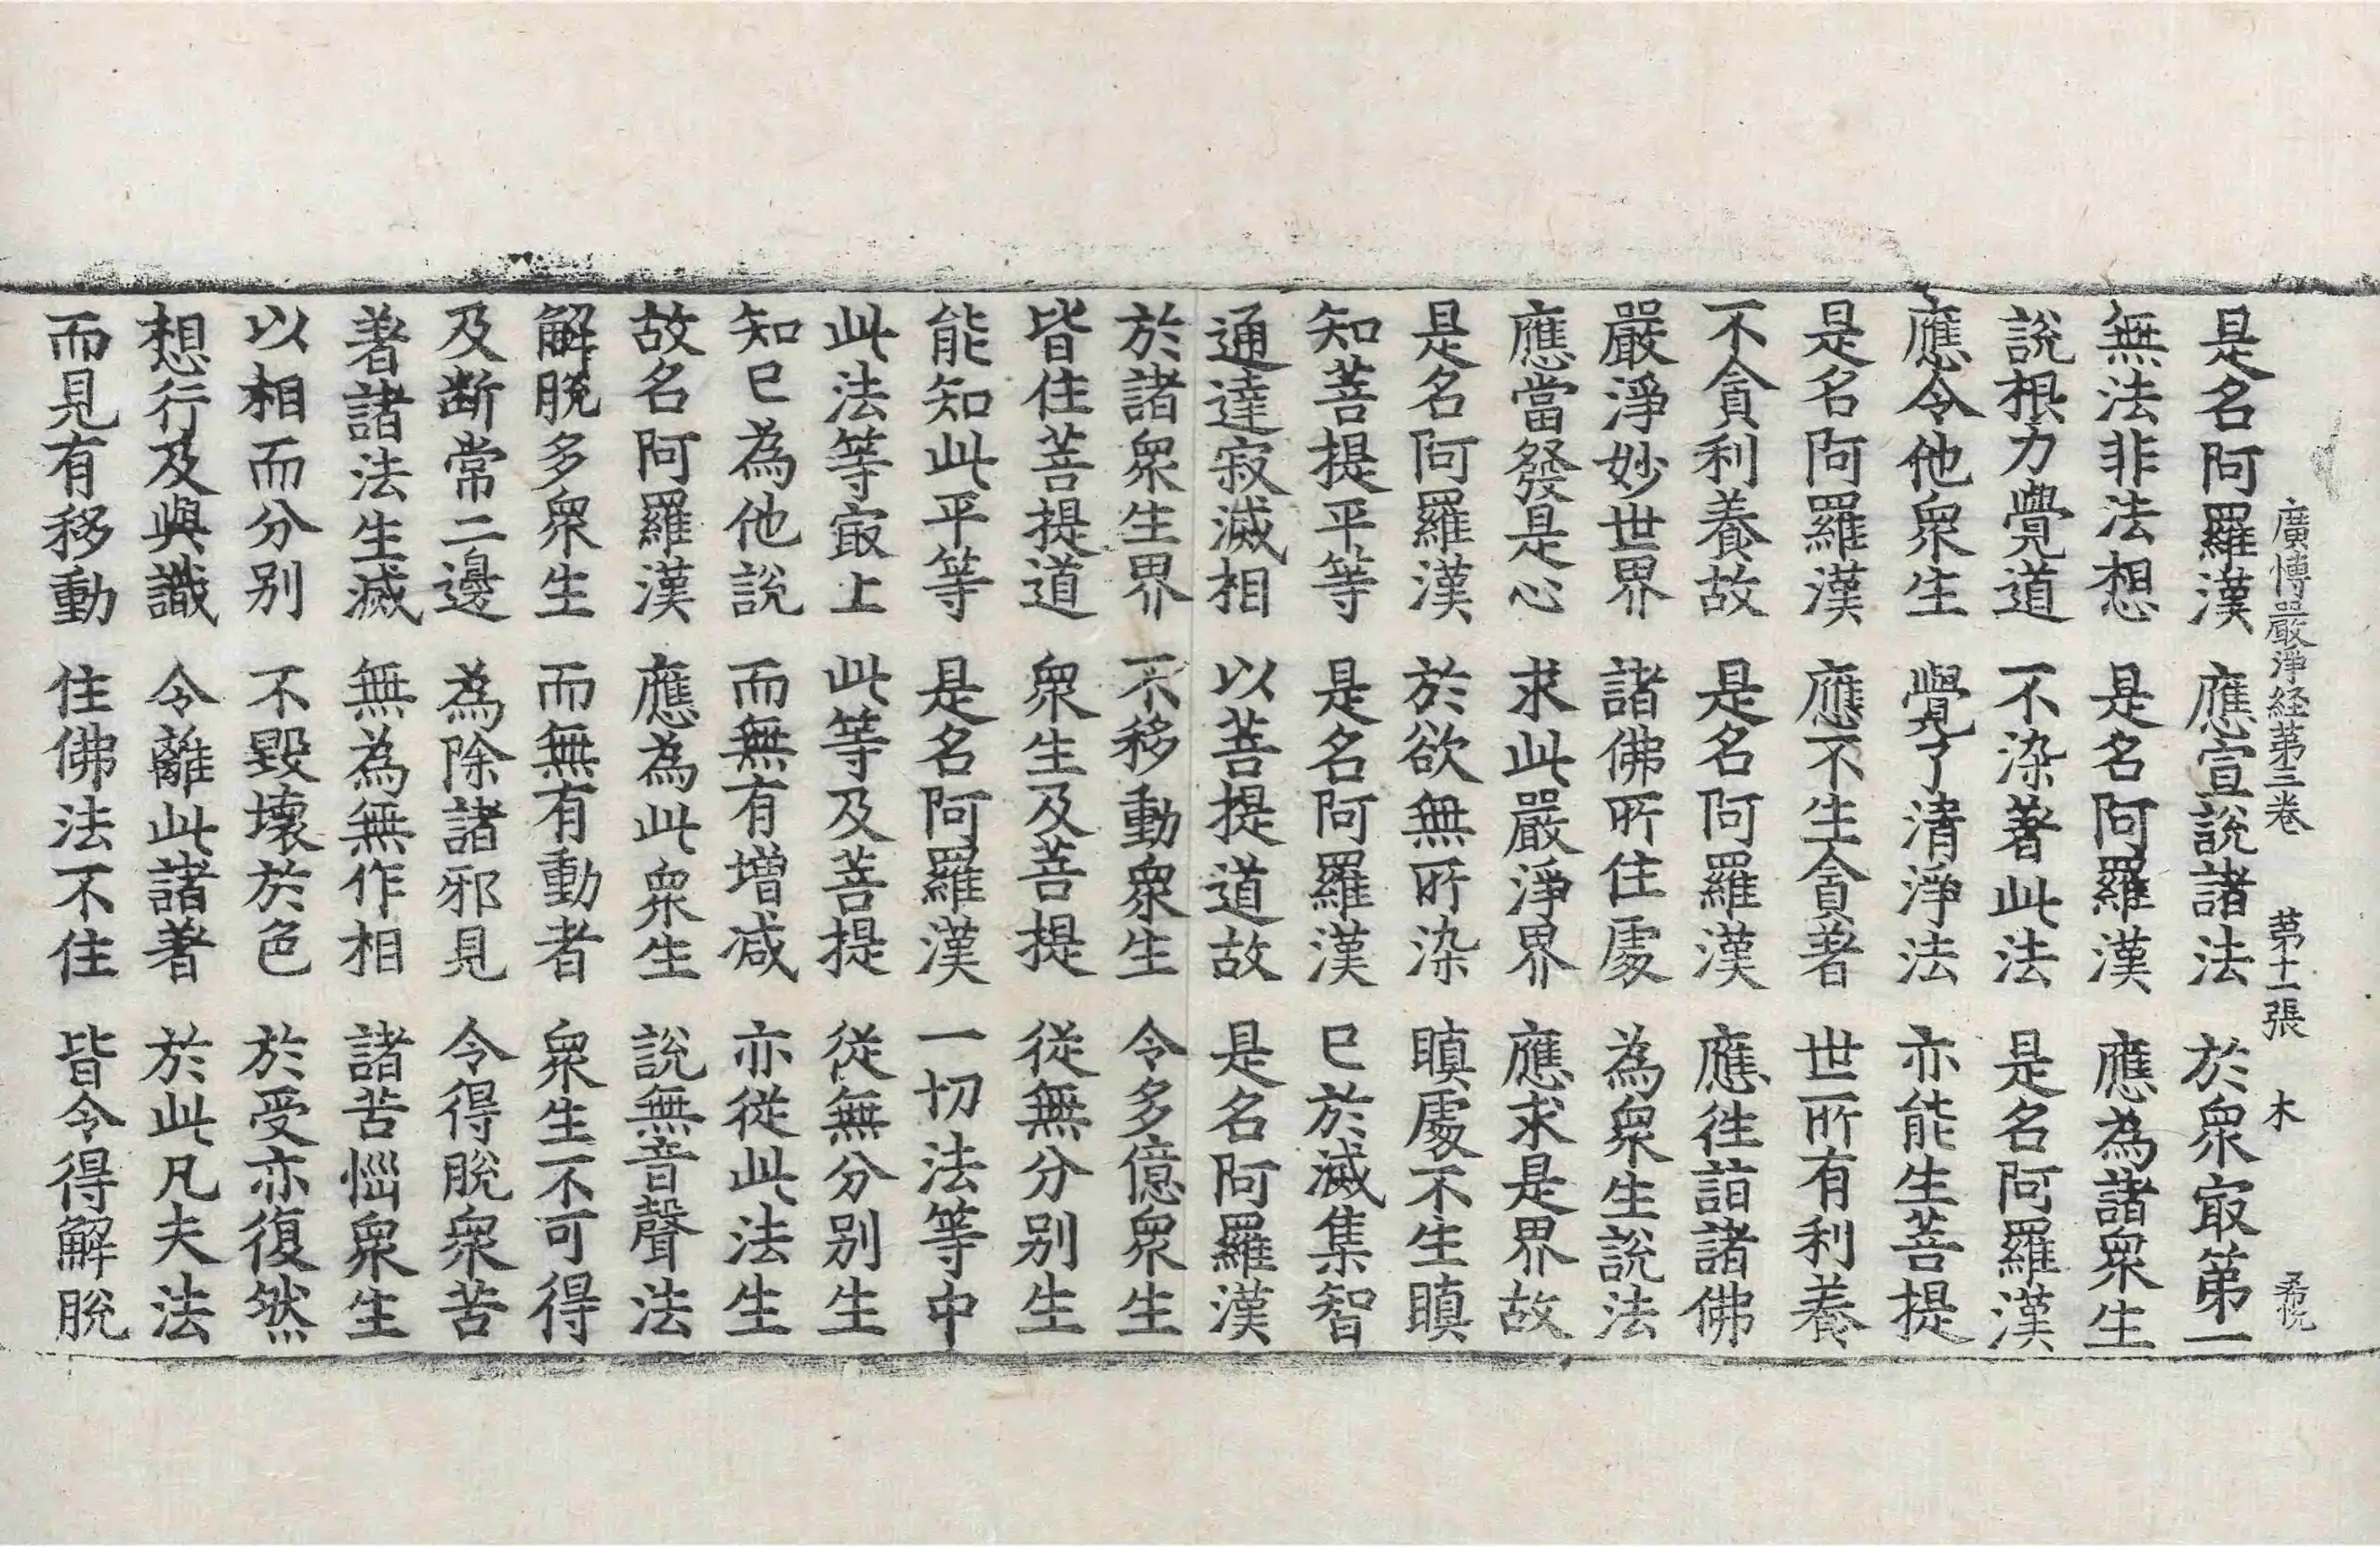 廣博嚴淨経第三卷 第十一張 木
是名阿羅漢 應宣說諸法 於衆㝡第一
無法非法想 是名阿羅漢 應為諸衆生
說根力覺道 不染著此法 是名阿羅漢
應令他衆生 覺了清淨法 亦能生菩提
是名阿羅漢 應不生貪著 世所有利養
不貪利養故 是名阿羅漢 應往詣諸佛
嚴淨妙世界 諸佛所住處 為衆生說法
應當發是心 求此嚴淨界 應求是界故
是名阿羅漢 於欲無所染 瞋處不生瞋
知菩提平等 是名阿羅漢 已於滅集智
通達寂滅相 以菩提道故 是名阿羅漢
於諸衆生界 不移動衆生 令多億衆生
皆住菩提道 衆生及菩提 従無分别生
能知此平等 是名阿羅漢 一切法等中
此法等㝡上 此等及菩提 従無分别生
知已為他說 而無有增減 亦従此法生
故名阿羅漢 應為此衆生 說無音聲法
解脫多衆生 而無有動者 衆生不可得
及断常二邊 為除諸邪見 令得脫衆苦
著諸法生滅 無為無作相 諸苦惱衆生
以相而分别 不毀壞於色 於受亦復然
想行及與識 令離此諸著 於此凡夫法
而見有移動 住佛法不住 皆令得解脫